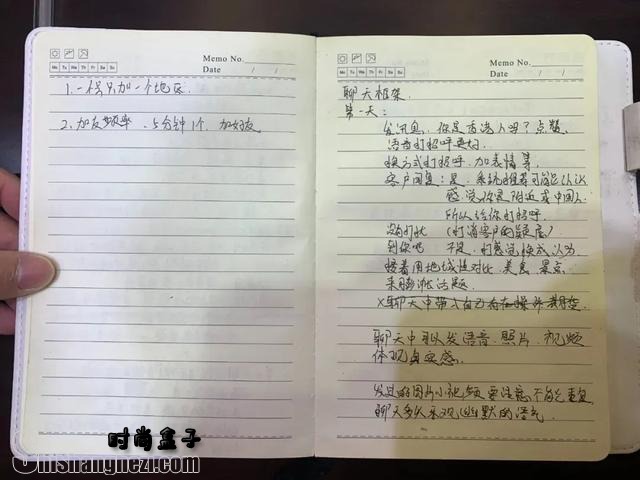 Memo No.
Mo Tu We Th Fr Sa Su
Date / /
1. 一号只加一个地区.
2. 加友频率、5分钟1个.加好友
Memo No.
Mo Tu We Th Fr Sa Su
Date / /
聊天框架.
第一天:
发讯息、你是香港人吗?点赞.
语音打招呼更好.
换方式打招呼.加表情等.
客户回复:是、系统推荐可能认识
感觉你是附近或中国人.
所以给你打招呼.
(打消客户的疑虑)
到你吧 不是.感觉换成以为.
接着用地域性对比.美食.景点.
来 话题.
X聊天中带入自己
聊天中可以发语音.照片.视频
体现真实感.
发过的图片小视频要注意.不能重复
聊天多以乐观.幽默的语气.
时尚盒子
Shishanghezi.com